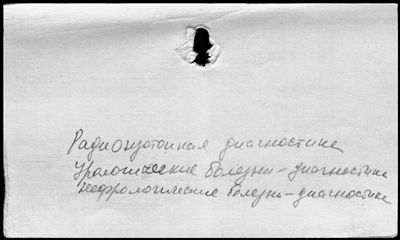 Радиоизотопная диагностика
Урологические болезни - диагностика
Нефрологические болезни - диагностика